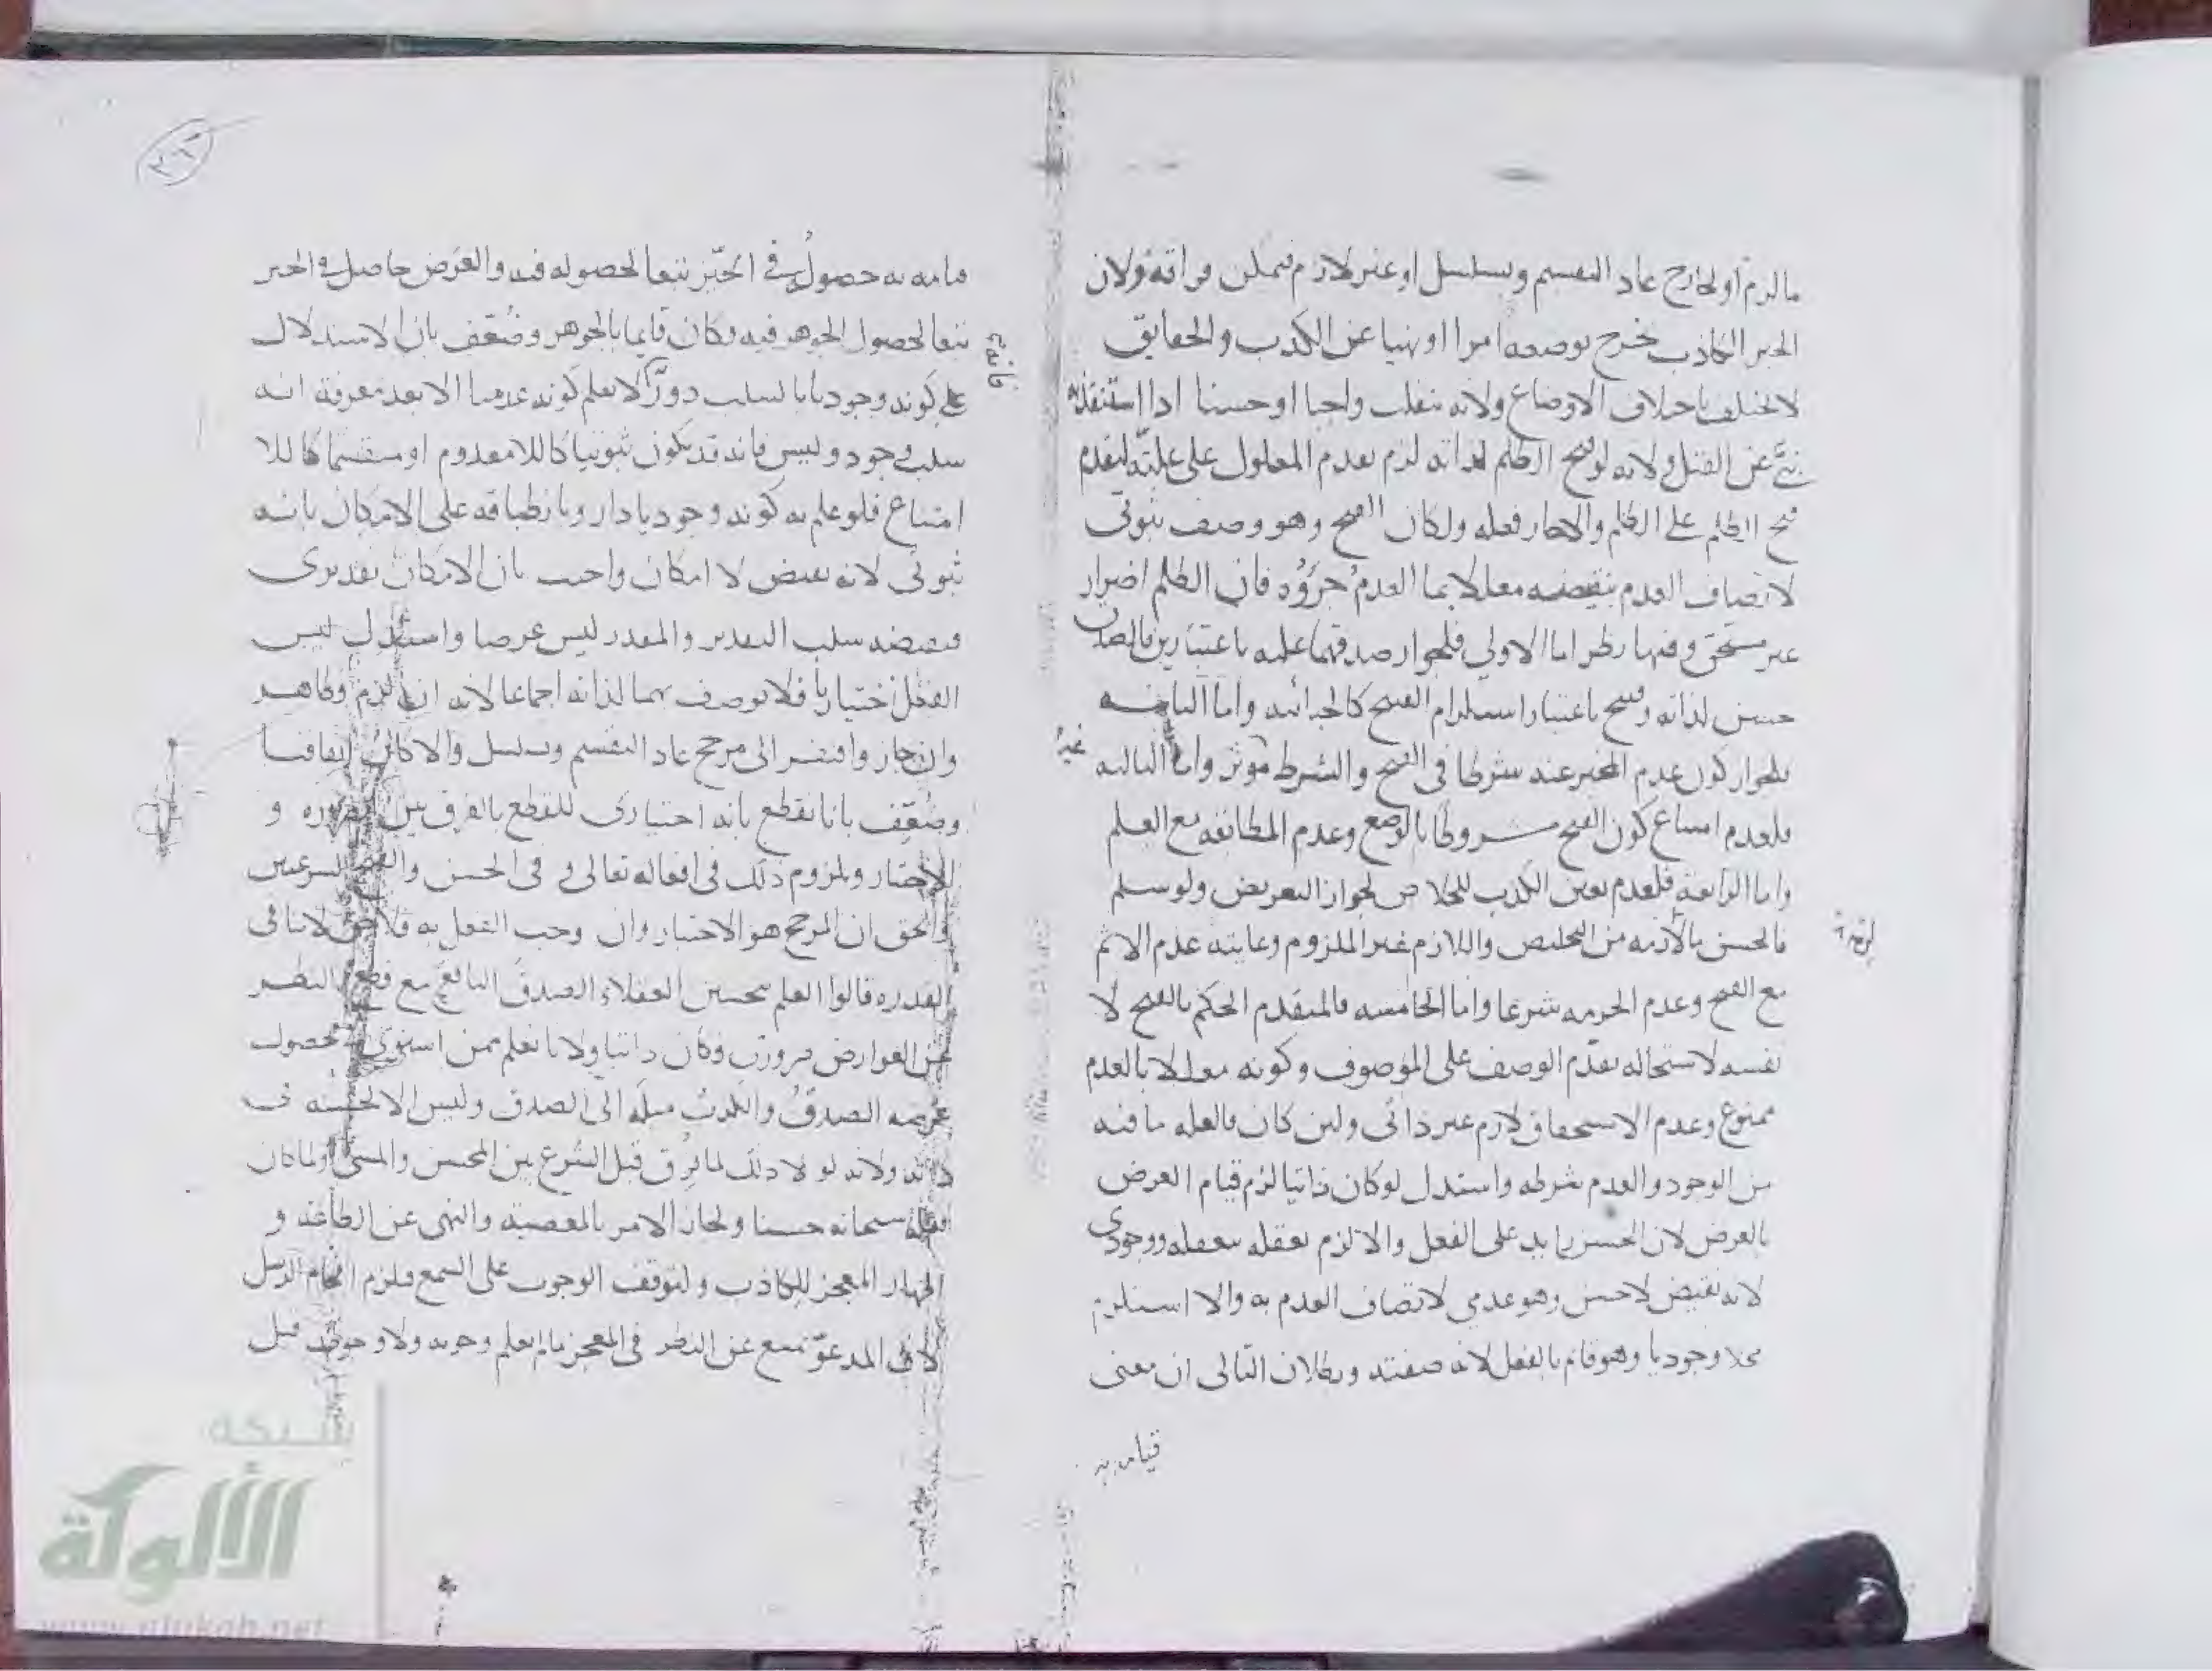 مالزم او لخارج عاد التقسيم وتسلسل او غير لازم فيمكن مفارقته ولان
الخبر الكاذب يخرج بوضعه امرا او نهيا عن الكذب والحقايق
لا تختلف باختلاف الاوضاع ولانه ينقلب واجبا او حسنا اذا استنقذ به
نبي عن القتل ولانه لو قبح الظلم لذاته لزم تقدم المعلول على علته لتقدم
قبح الظلم على الظلم والا جاز فعله ولكان القبح وهو وصف ثبوتي
لاتصاف العدم بنقيضه معللا بما العدم جزؤه فان الظلم اضرار
غير مستحق وفيها نظر اما الاولى فلجواز صدقهما عليه باعتبارين فالصدق
حسن لذاته وقبيح باعتبار استلزام القبح كالجزائية واما الثانيه
فلجواز كون عدم المخبر عنه شرطا في القبح والشرط غير موثر واما الثالثه
فلعدم امتناع كون القبح مشروطا بالوضع وعدم المطابقه مع العلم
واما الرابعة فلعدم تعين الكذب للخلاص لجواز التعريض ولو سلم
فالحسن مالازمه من التخليص واللازم غير الملزوم وغايته عدم الاثم
مع القبح وعدم الحرمه شرعا واما الخامسه فالمتقدم الحكم بالقبح لا
نفسه لاستحاله تقدم الوصف على الموصوف وكونه معللا بالعدم
ممنوع وعدم الاستحقاق لازم غير ذاتي ولين كان فالعله ما فيه
من الوجود والعدم شرطه واستدل لو كان ذاتيا لزم قيام العرض
بالعرض لان الحسن زايد على الفعل والا لزم تعقله بتعقله ووجودي
لانه نقيض لاحسن وهو عدمي لاتصاف العدم به والا استلزم
محلا وجوديا وهو قايم بالفعل لانه صفته وبطلان التالي ان معنى
قيامه به
قيامه به حصوله في الحيز تبعا لحصوله فيه والعرض حاصل في الحيز
تبعا لحصول الجوهر فيه وكان قايما بالجوهر وضعف بان الاستدلال
على كونه وجوديا بالسلب دور لا يعلم كونه عدميا الا بعد معرفة انه
سلب وجود وليس فانه قد يكون ثبوتيا كاللامعدوم او منقسما كاللا
امتناع فلو علم به كونه وجوديا دار وبانطباقه على الامكان بانه
ثبوتي لانه نقيض لا امكان واجيب بان الامكان تقديري
فنقيضه سلب التقدير والمقدر ليس عرضا واستدل ليس
الفعل اختياريا فلا يوصف بهما لذاته اجماعا لانه ان لزم فظاهر
وان جاز وافتقر الى مرجح عاد التقسيم وتسلسل والا كان اتفاقيا
وضعف بانا نقطع بانه اختياري للقطع بالفرق بين الضروره و
الاختيار ولزوم ذلك في افعاله تعالى وفي الحسن والقبح الشرعيين
والحق ان المرجح هو الاختيار وان وجب الفعل به لا ينافي
القدره قالوا العلم بتحسين العقلاء الصدق النافع مع قطع النظر
عن العوارض ضروري وكان ذاتيا ولانا نعلم ممن استوى لحصول
غرضه الصدق والكذب ميله الى الصدق وليس الا لحسنه في
ذاته ولانه لولا ذلك لما فرق قبل الشرع بين المحسن والمسي ولما كان
فعله سبحانه حسنا ولجاز الامر بالمعصية والنهي عن الطاعة و
اظهار المعجز للكاذب ولتوقف الوجوب على السمع فلزم افحام الرسل
لان المدعو يمتنع عن النظر في المعجز ما لم يعلم وجوبه ولا وجوب قبل
شبكة
الألوكة
www.alukah.net